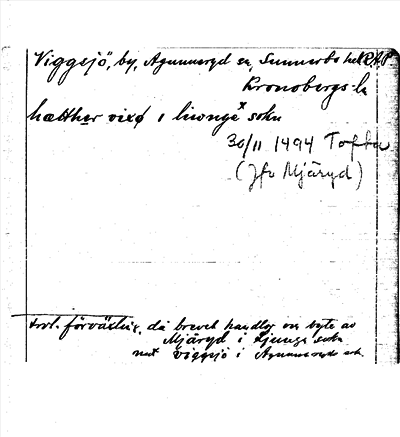 Viggsjö, by, Agunnaryd sn, Sunnerbo hd RAP
Kronobergs l.
hætther vixø i liwngæ x sokn
30/11 1494 Tofta
(Jfr Mjäryd)
trol. förväxling, då brevet handlar om byte av
Mjäryd i Ljunga sokn
mot Viggsjö i Agunnaryds sn.